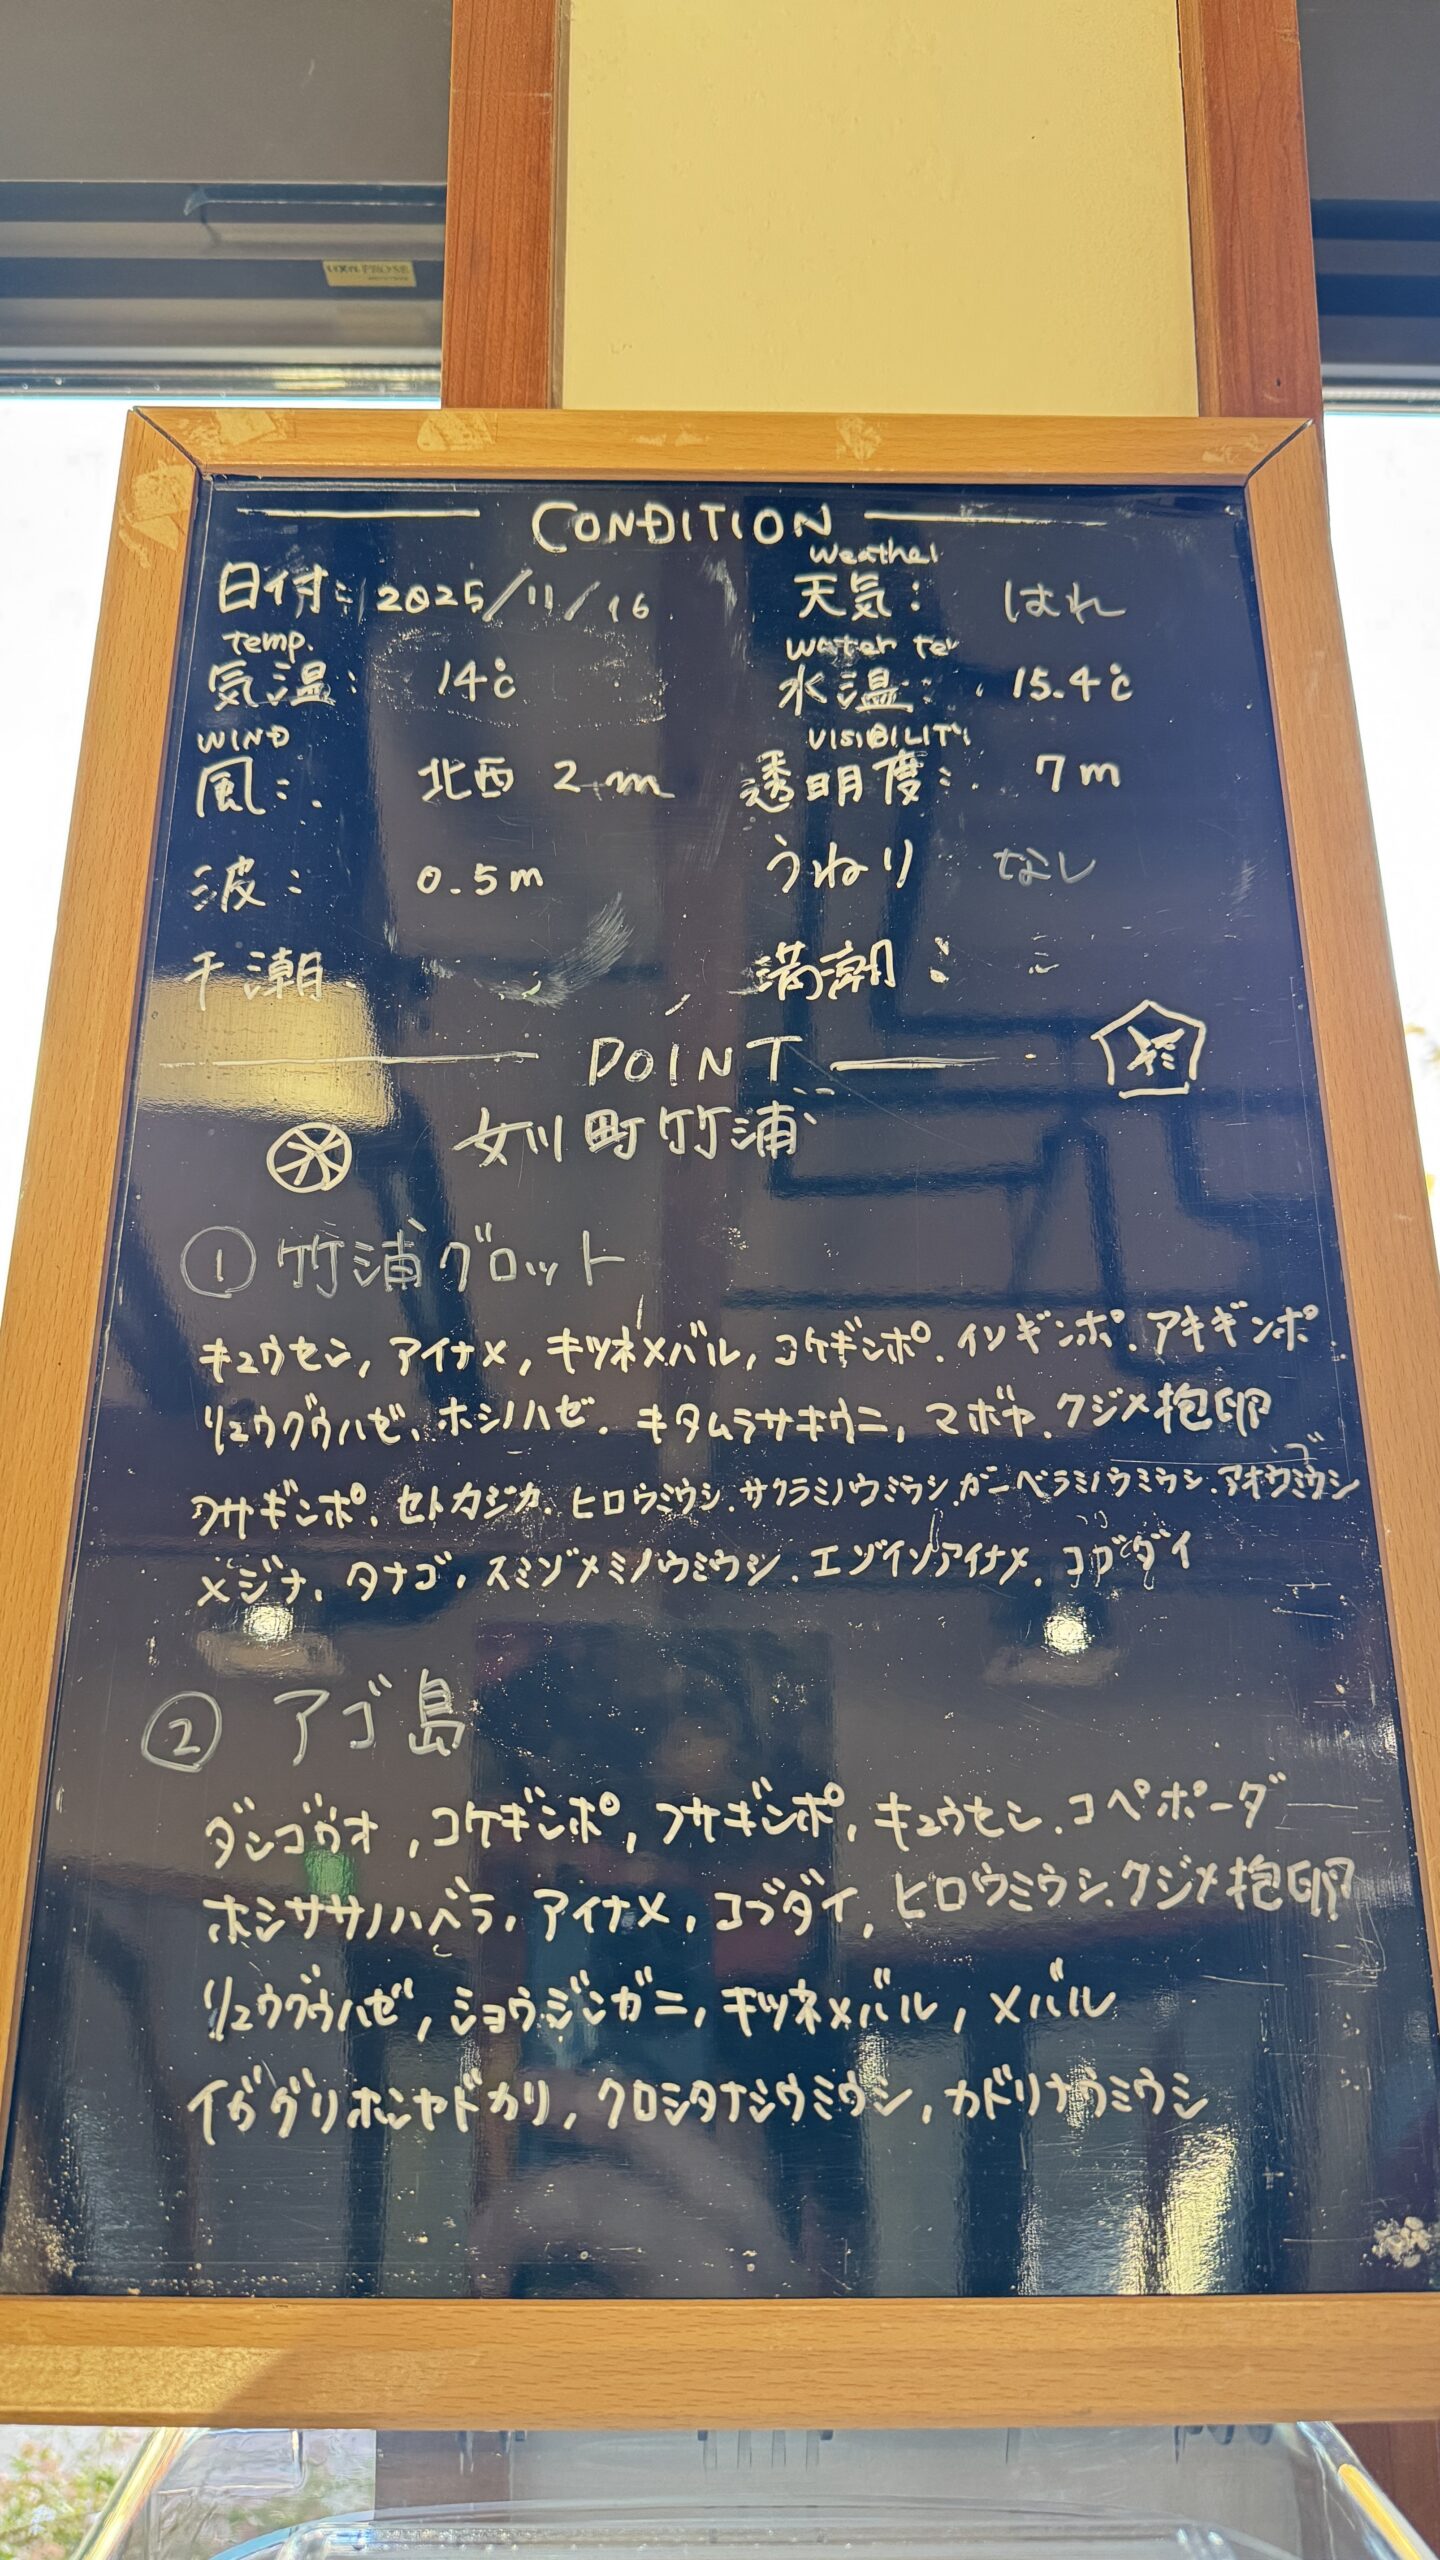 CONDITION
Weather
日付: 2025/11/16 天気: はれ
temp. water te
気温: 14℃ 水温: 15.4℃
WIND VISIBILITY
風: 北西 2m 透明度: 7m
波: 0.5m うねり なし
干潮 満潮:
POINT
女川町竹浦
① 竹浦グロット
キュウセン, アイナメ, キツネメバル, コケギンポ. イソギンポ. アキギンポ.
リュウグウハゼ、ホシノハゼ. キタムラサキウニ, マボヤ. クジメ抱卵
フサギンポ, セトカジカ. ヒロウミウシ. サクラミノウミウシ. ガーベラミノウミウシ. アオウミウシ
メジナ. タナゴ, スミゾメミノウミウシ. エゾイソアイナメ. コブダイ
② アゴ島
ダンゴウオ, コケギンポ, フサギンポ, キュウセン. コペポーダ
ホシササノハベラ, アイナメ, コブダイ, ヒロウミウシ. クジメ抱卵
リュウグウハゼ, ショウジンガニ, キツネメバル, メバル
イガグリホンヤドカリ, クロシタナシウミウシ, カドリナウミウシ